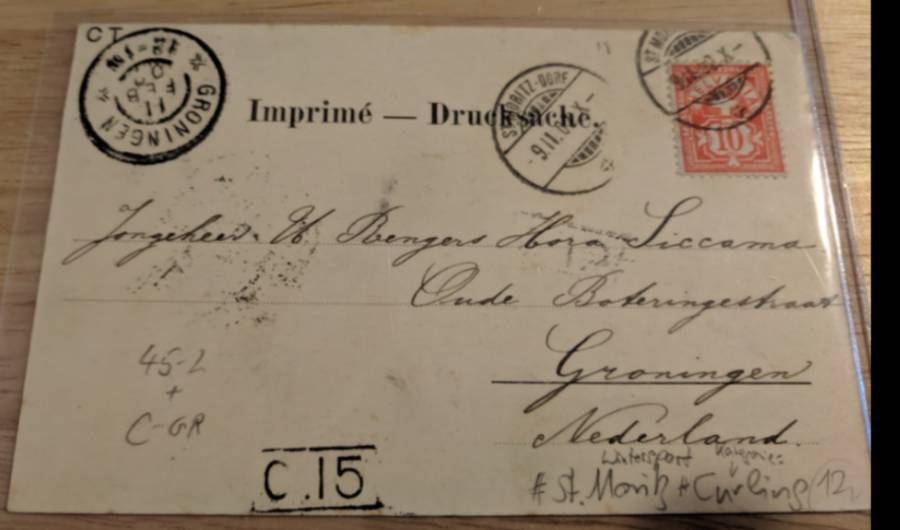 CT
GRONINGEN
Imprimé — Drucksache.
ST. MORITZ-DORF
-9.II.0 X-
ST. MO
X-
10
Jongeheer. W. Rengers Hora Siccama
Oude Boteringestraat
Groningen
Nederland.
45-2
+
C-GR
C.15
Wintersport
# St. Moritz + Curling /12